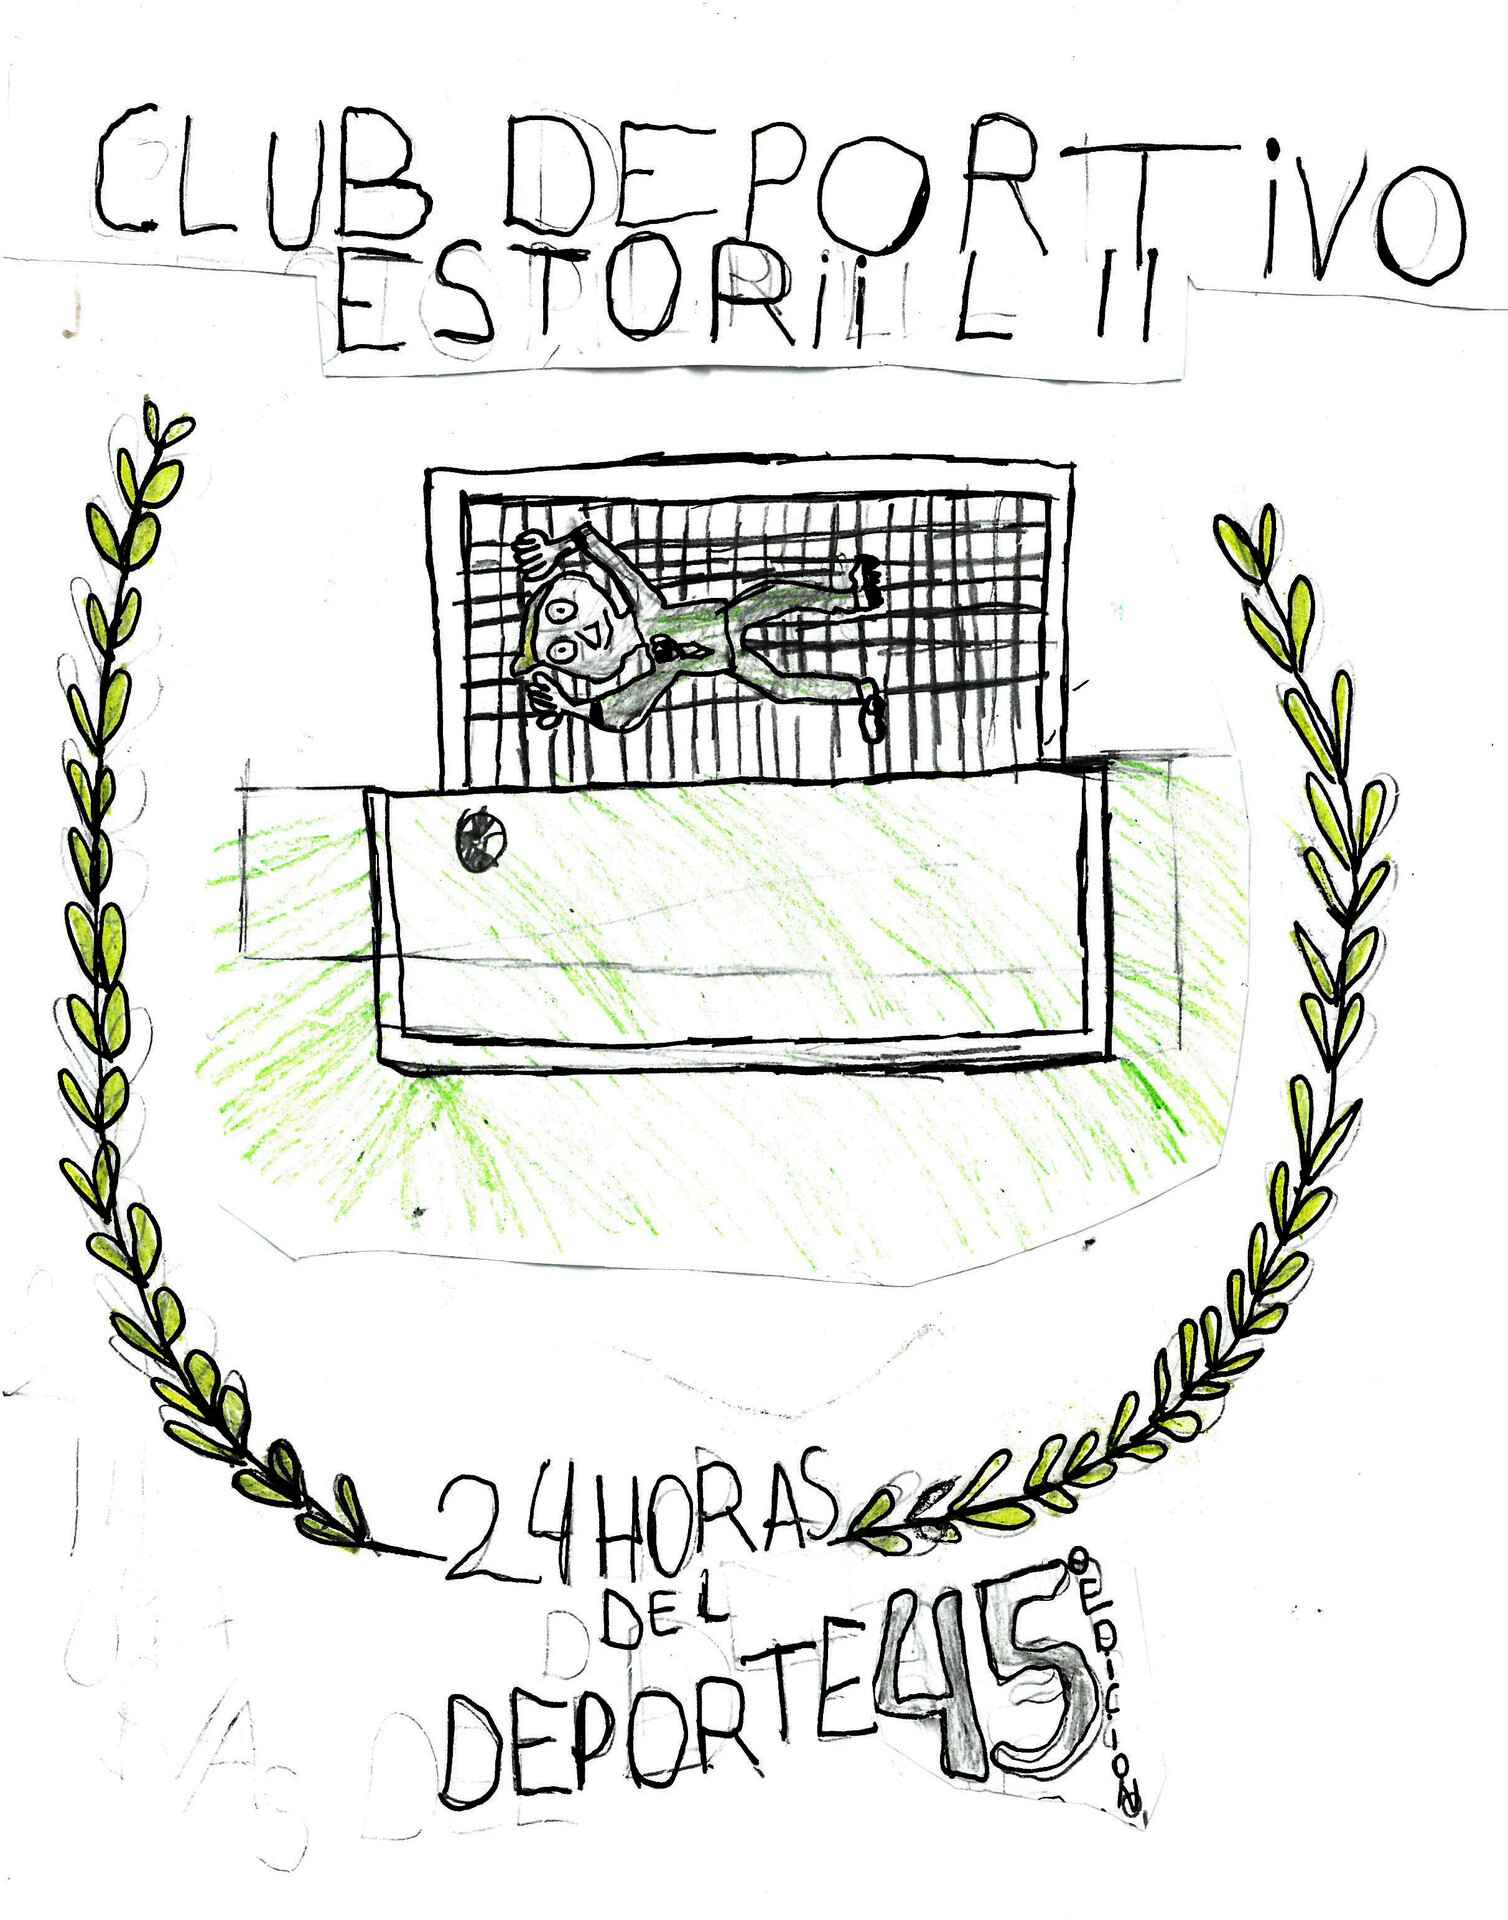 CLUB DEPORTiVO
ESTORiiL II
24 HORAS
DEL
DEPORTE 45º EDICION